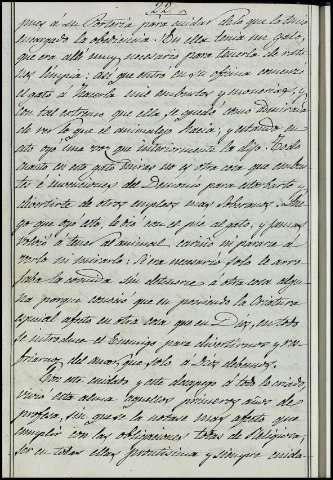 22
pues a su Porteria para cuidar de lo que le tenia
encargado la obediencia. En ella tenia un gato,
que era allí muy necesario para tenerla de rato-
nes limpia; así que entro en su oficina comenzó
el gato á hacerla mil embustes y monerias, y
con tal extremo que ella se quedó como admirada
de ver lo que el animalejo hacia; y estando en
esto oyó una voz que interiormente la dijo: Todo
cuanto en este gato miras no es otra cosa que embus-
tes é invenciones del Demonio para estorbarte y
divertirte de otros empleos mas soberanos. Lue-
go que oyó esto, le dió con el pie al gato, y jamas
volvió á tener tal animal, cuidó ni parara a
verlo ni mirarlo. Si era necesario solo le arro-
jaba la comida sin detenerse á otra cosa algu-
na porque conoció que en poniendo la Criatura
especial afecto en otra cosa que en Dios, en todo
se introduce el Enemigo para divertirnos y res-
friarnos del amor que solo a Dios debemos.
Con este cuidado y este despego á todo lo criado,
vivió esta alma aquellos primeros años de
profesa, sin que se la notase mas afecto que
cumplir con las obligaciones todas de Religiosa,
ser en todas ellas prontisima y siempre cuida-